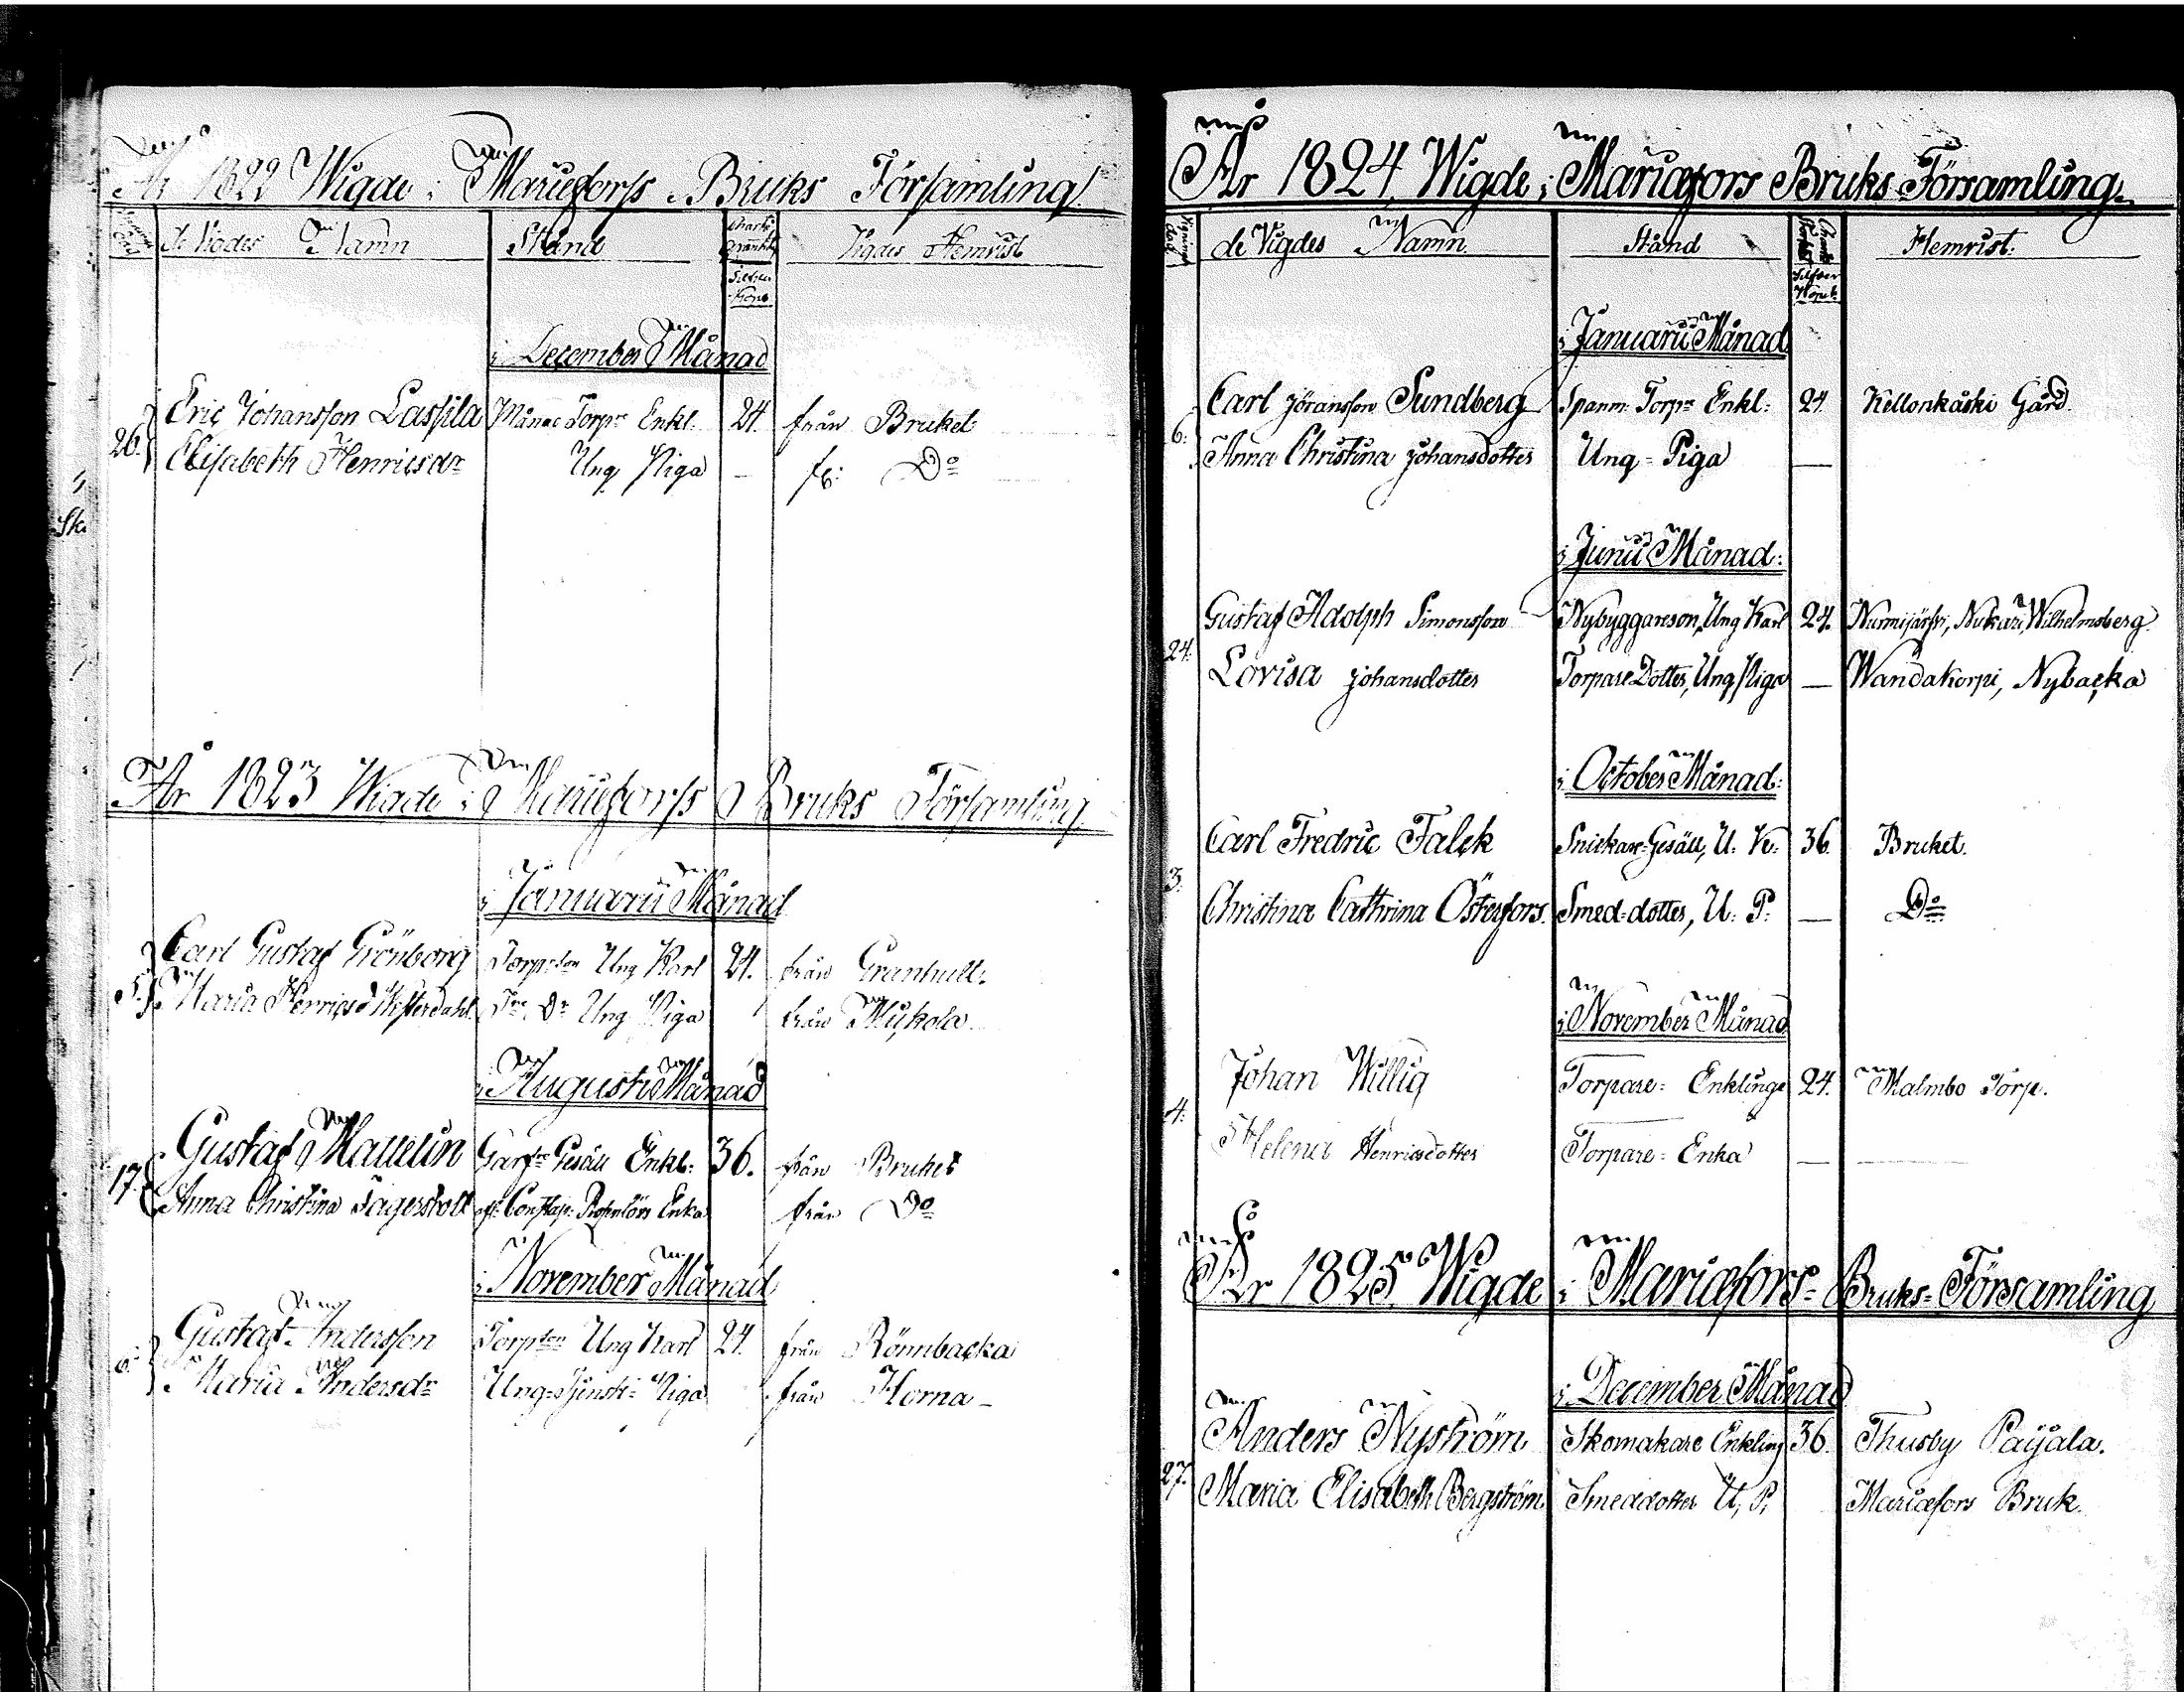 År 1822 Wigde i Marieforss Bruks Församling
de Vigdes Namn Stånd Vigdes Hemvist
i December Månad
26. Eric Johansson Lassila Torpr Enkl. 24. från Bruket
Elisabeth Henricsdr Ung Piga — fr: Do
År 1823 Wigde i Marieforss Bruks Församling
i Januarii Månad
5. Carl Gustaf Grönborg Torpson Ung Karl 24. från Granhult.
Maria Henricsd Westerdahl Dr Ung Piga från
i Augusti Månad
17. Gustaf Mallelin Garfr Gesäll Enkl: 36. från Bruket
Anna Christina Enka från Do
i November Månad
6. Gustaf Andersson Torpson Ung Karl 24. från Rönnbacka
Maria Andersdr Ung Tjenst Piga från Horna —
År 1824 Wigde i Mariæfors Bruks Församling
Vignings dag de Vigdes Namn Stånd Hemvist.
Silfver Kopek
i Januarii Månad
6. Carl Jöransson Sundberg Spanm. Torpr Enkl: 24. Kellonkåski Gård
Anna Christina Johansdotter Ung Piga —
i Junii Månad:
24. Gustaf Adolph Simonsson Nybyggareson, Ung Karl 24. Nurmijärfvi, Nukari, Wilhelmsberg.
Lovisa Johansdotter Torpare Dotter, Ung Piga — Wandakorpi, Nybacka
i October Månad:
3. Carl Fredric Falck Snickare-Gesäll, U. K: 36. Bruket.
Christina Cathrina Österfors. Smed-dotter, U: P: — Do
i November Månad
4. Johan Willig Torpare- Enklinge 24. Malmbo Torp.
Helena Henricsdotter Torpare- Enka —
År 1825 Wigde i Mariæfors- Bruks- Församling
i December Månad
27. Anders Nyström Skomakare Enkling 36. Thusby Paijala.
Maria Elisabeth Bergström Smeddotter U, P, Mariæfors Bruk.